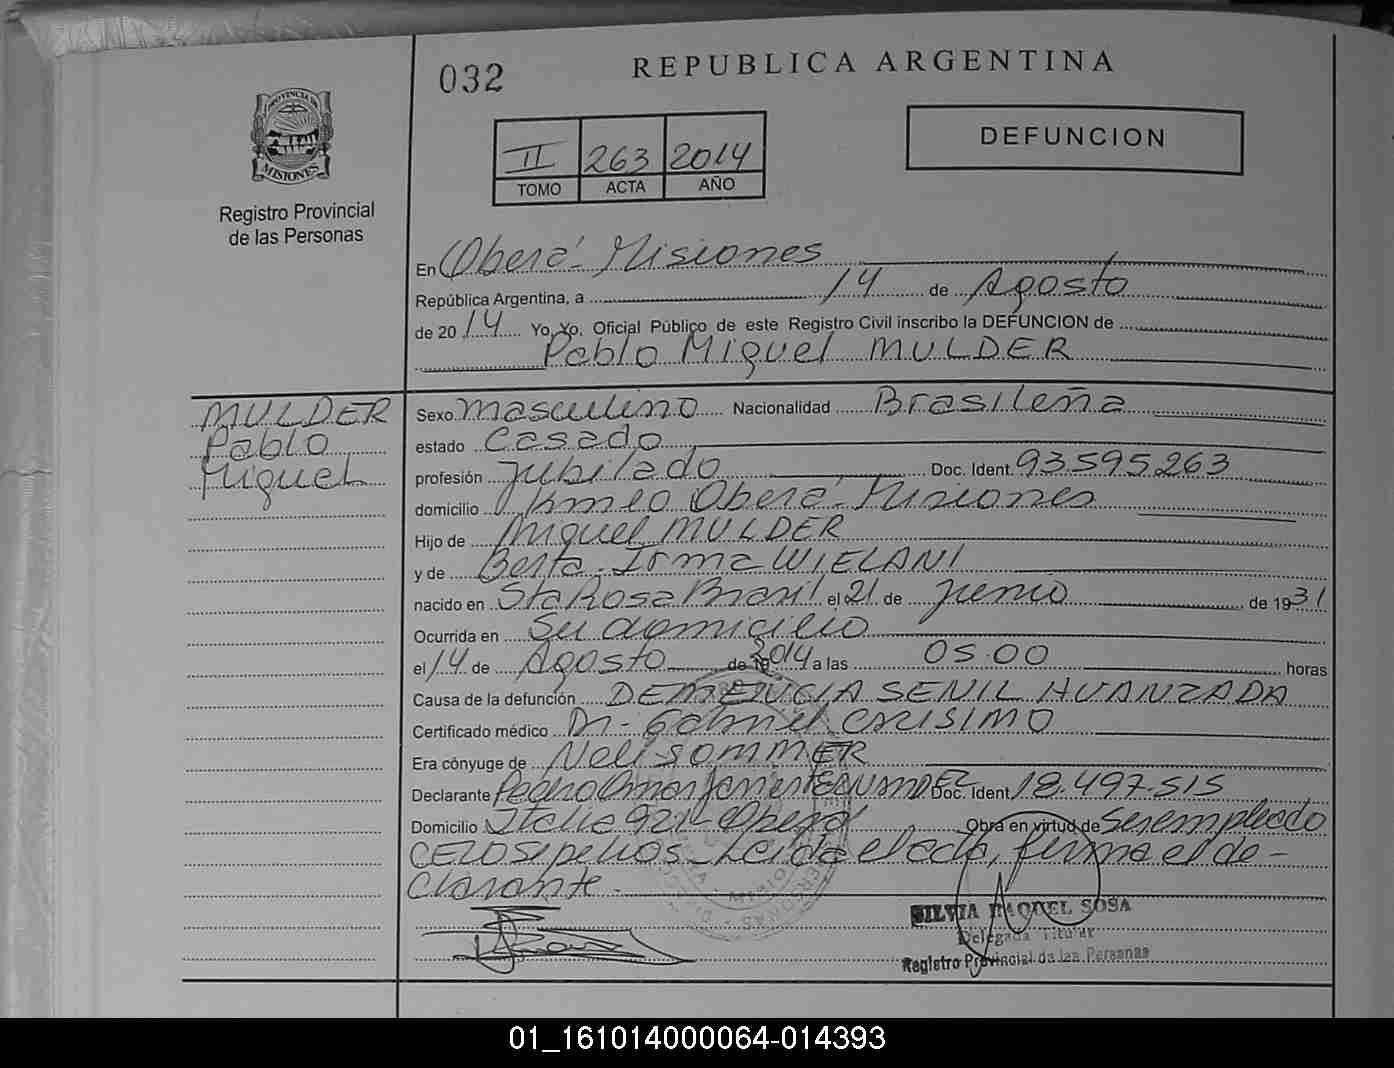 032
REPUBLICA ARGENTINA
PROVINCIA DE
MISIONES
Registro Provincial
de las Personas
II 263 2014
TOMO ACTA AÑO
DEFUNCION
En Oberá- Misiones
República Argentina, a 14 de Agosto
de 2014 Yo, Yo. Oficial Público de este Registro Civil inscribo la DEFUNCION de
Pablo Miguel MULDER
MULDER
Pablo
Miguel
Sexo masculino Nacionalidad Brasileña
estado Casado
profesión Jubilado Doc. Ident. 93595263
domicilio Oberá-Misiones
Hijo de Miguel MULDER
y de Berta Irma WIELANI
nacido en Sta Rosa Brasil el 21 de junio de 1931
Ocurrida en Su domicilio
el 14 de Agosto de 2014 a las 05.00 horas
Causa de la defunción DEMENCIA SENIL AVANZADA
Certificado médico Dr- Gabriel CARISIMO
Era cónyuge de Neli SOMMER
Declarante Pedro Omar Javier FERNANDEZ Doc. Ident 18.497.515
Domicilio Italia 921- Oberá Obra en virtud de ser empleado
CELO Sepelios- Leida el acta, firma el de-
clarante.
SILVIA RAQUEL SOSA
Delegada Titular
Registro Provincial de las Personas
01_161014000064-014393